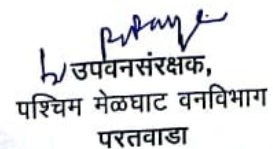 उपवनसंरक्षक,
पश्चिम मेळघाट वनविभाग
परतवाडा